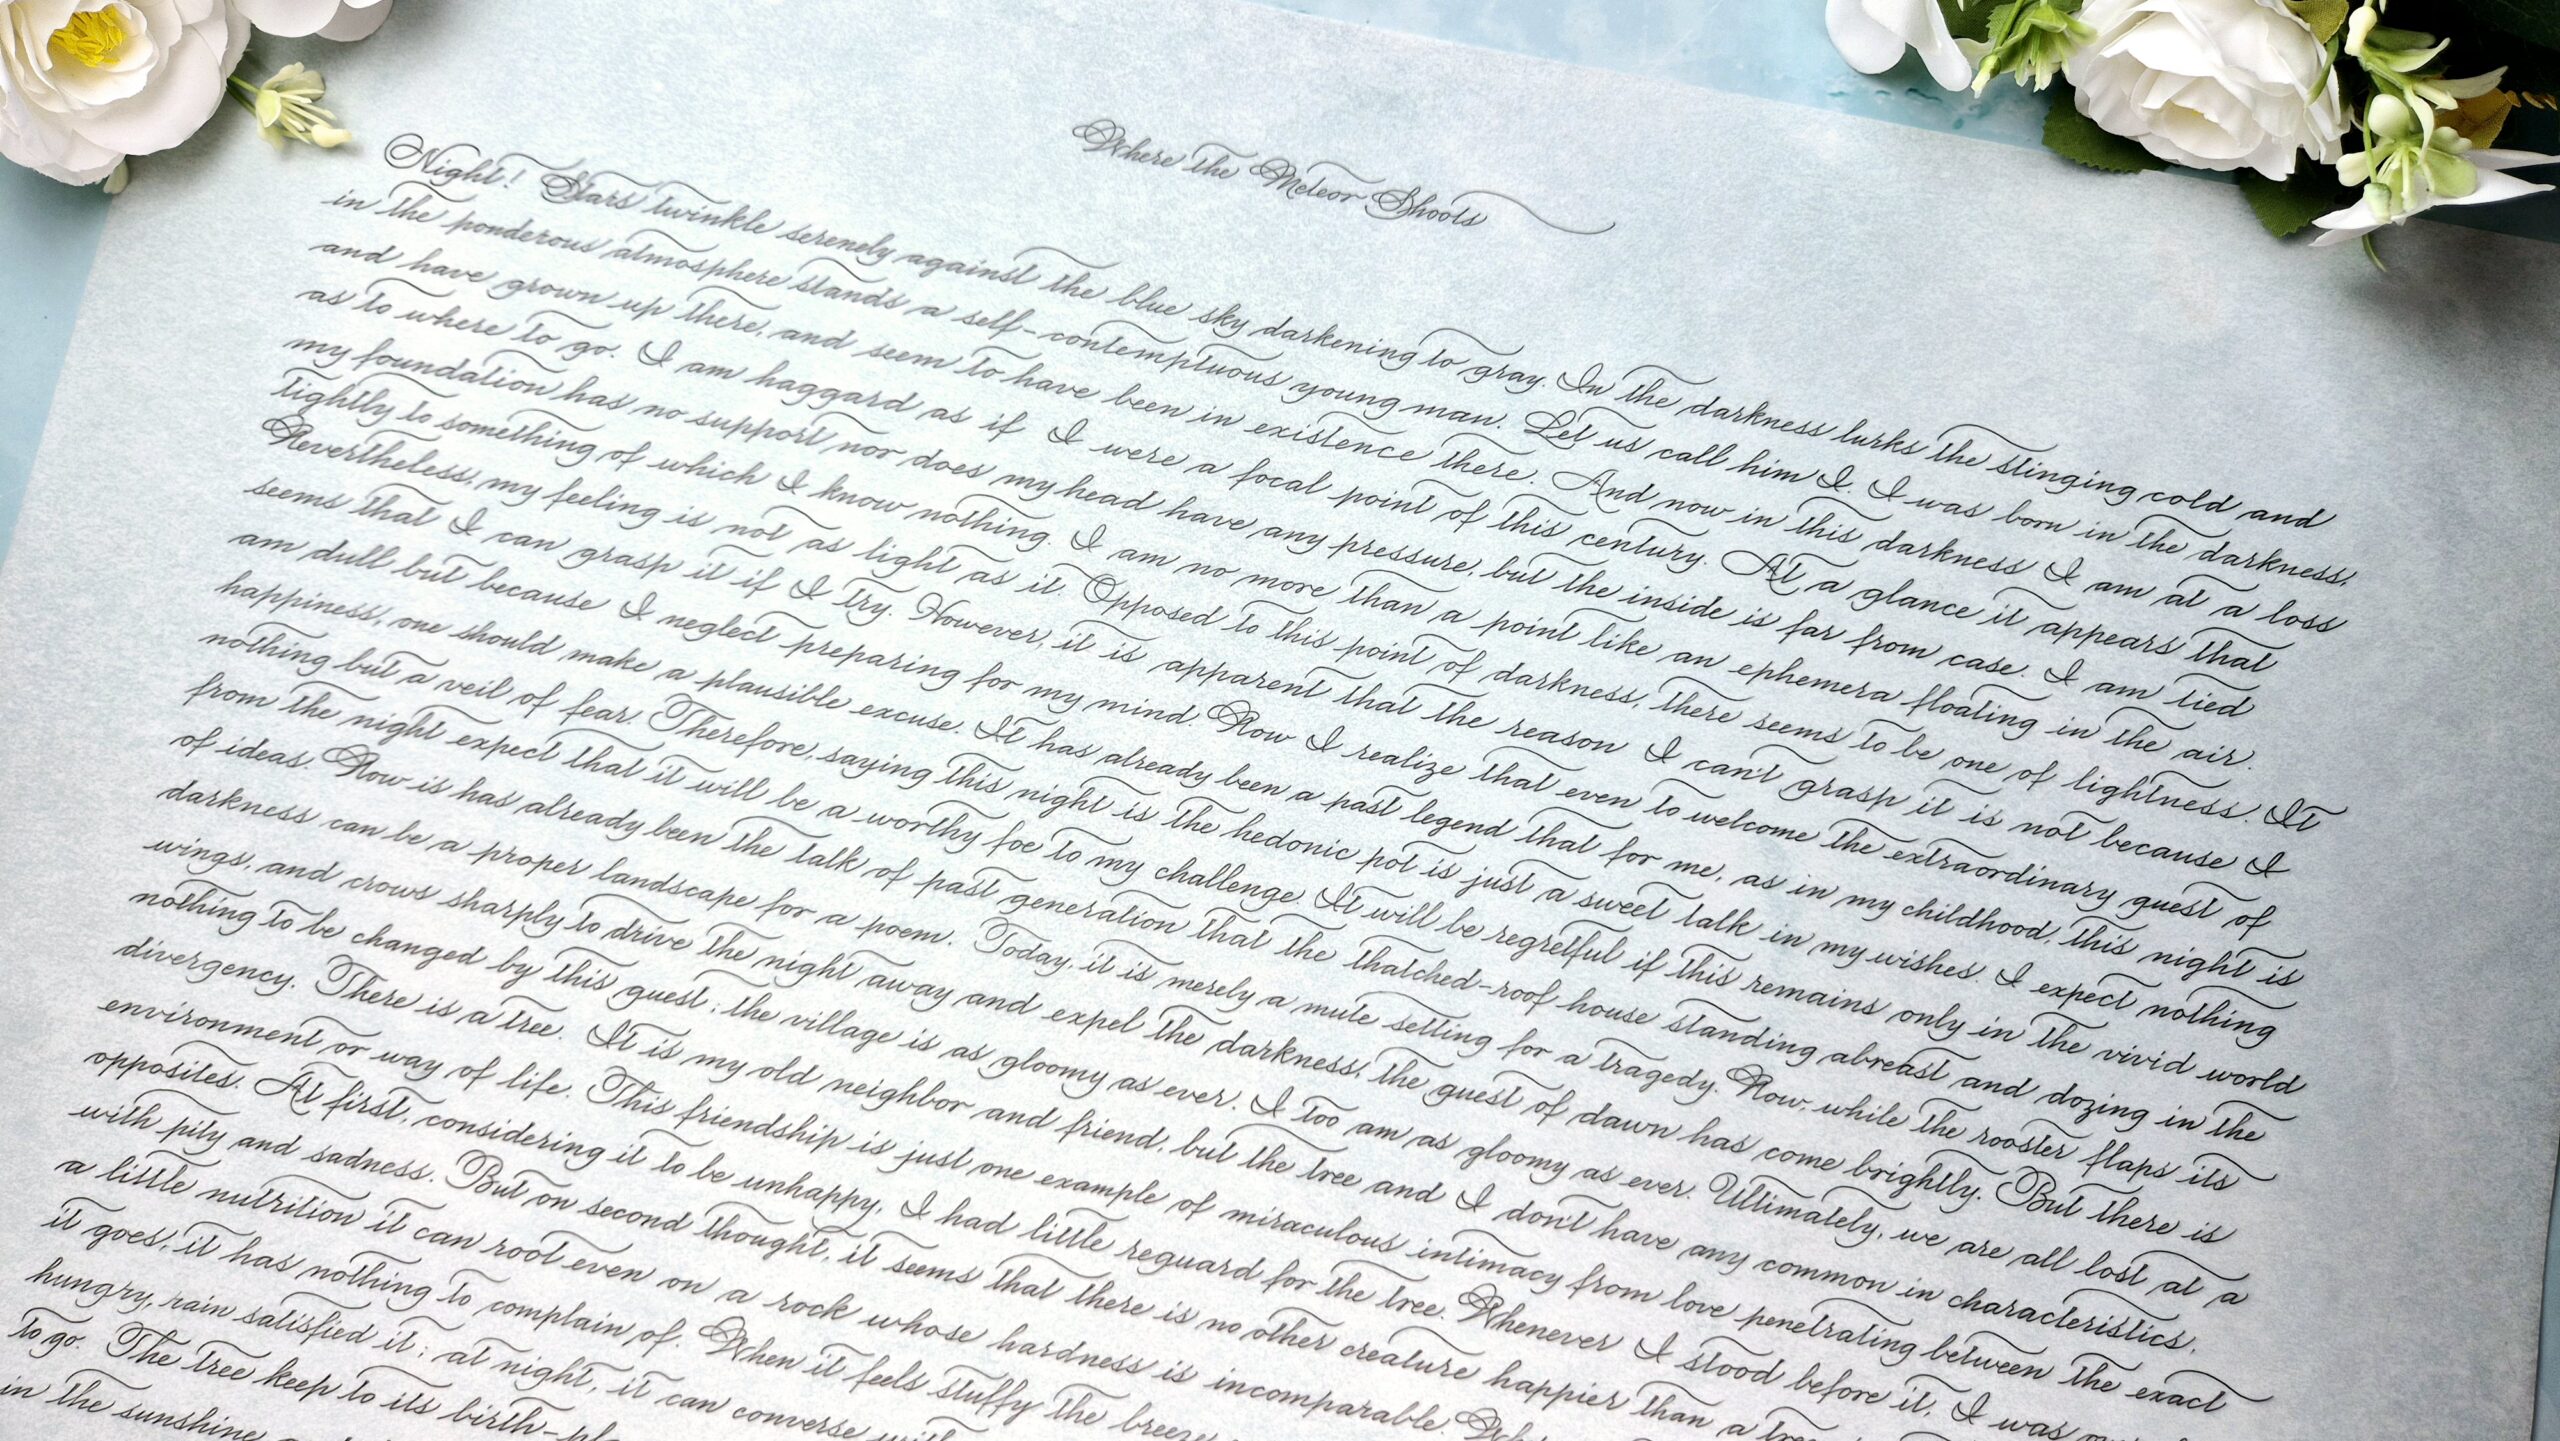 Where the Meteor Shoots
Night! Stars twinkle serenely against the blue sky darkening to gray. In the darkness lurks the stinging cold and
in the ponderous atmosphere stands a self-contemptuous young man. Let us call him I. I was born in the darkness,
and have grown up there, and seem to have been in existence there. And now in this darkness I am at a loss
as to where to go. I am haggard as if I were a focal point of this century. At a glance it appears that
my foundation has no support nor does my head have any pressure, but the inside is far from case. I am tied
tightly to something of which I know nothing. I am no more than a point like an ephemera floating in the air.
Nevertheless, my feeling is not as light as it. Opposed to this point of darkness, there seems to be one of lightness. It
seems that I can grasp it if I try. However, it is apparent that the reason I can't grasp it is not because I
am dull but because I neglect preparing for my mind. Now I realize that even to welcome the extraordinary guest of
happiness, one should make a plausible excuse. It has already been a past legend that for me, as in my childhood, this night is
nothing but a veil of fear. Therefore, saying this night is the hedonic pot is just a sweet talk in my wishes. I expect nothing
from the night expect that it will be a worthy foe to my challenge. It will be regretful if this remains only in the vivid world
of ideas. Now is has already been the talk of past generation that the thatched-roof house standing abreast and dozing in the
darkness can be a proper landscape for a poem. Today, it is merely a mute setting for a tragedy. Now, while the rooster flaps its
wings, and crows sharply to drive the night away and expel the darkness, the guest of dawn has come brightly. But there is
nothing to be changed by this guest; the village is as gloomy as ever. I too am as gloomy as ever. Ultimately, we are all lost at a
divergency. There is a tree. It is my old neighbor and friend, but the tree and I don't have any common in characteristics,
environment or way of life. This friendship is just one example of miraculous intimacy from love penetrating between the exact
opposites. At first, considering it to be unhappy, I had little reguard for the tree. Whenever I stood before it, I was
with pity and sadness. But on second thought, it seems that there is no other creature happier than a tree
a little nutrition it can root even on a rock whose hardness is incomparable.
it goes, it has nothing to complain of. When it feels stuffy the breeze
hungry, rain satisfied it; at night, it can converse with
to go. The tree keep to its birth-
in the sunshine